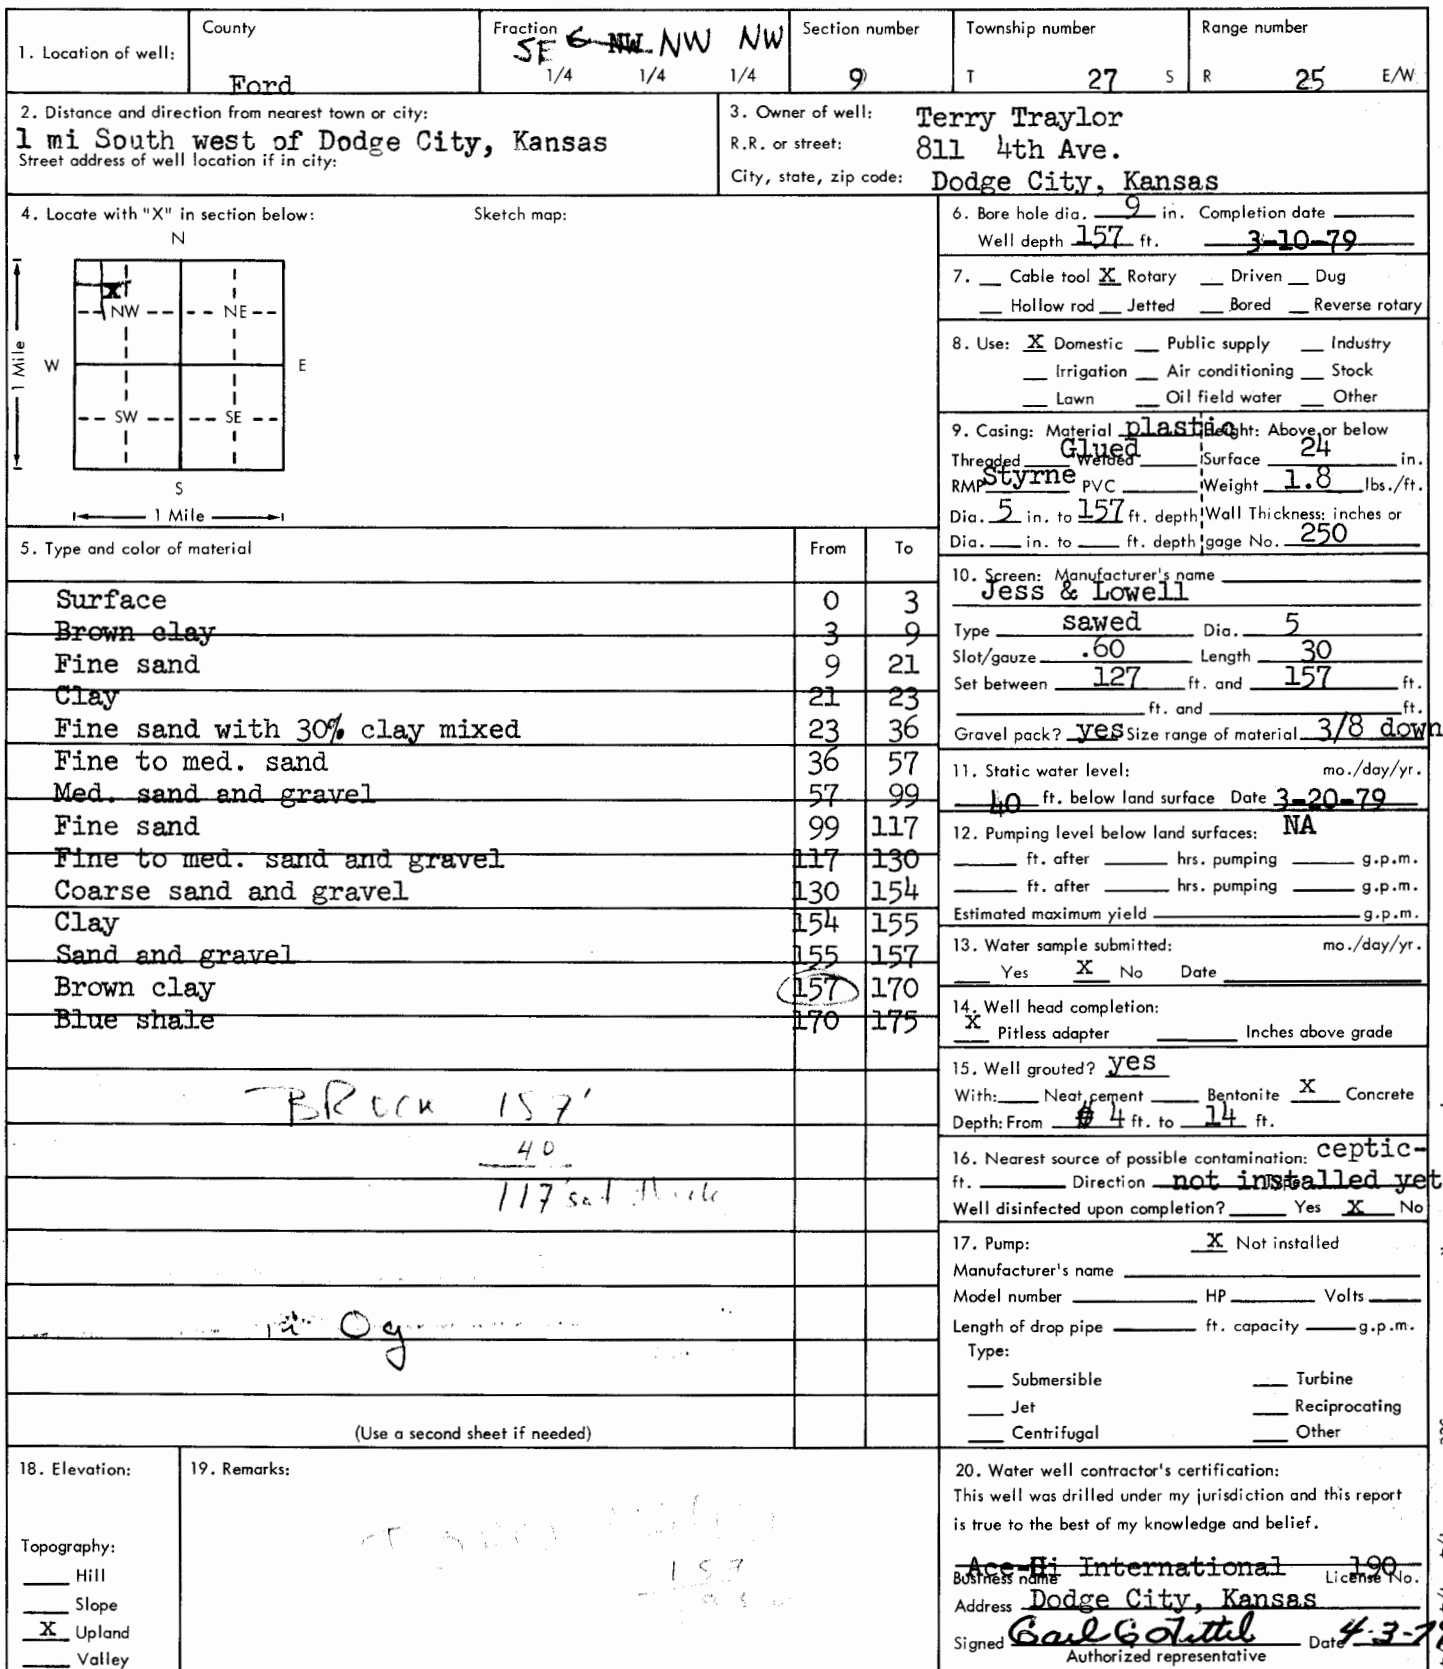 1. Location of well:
County
Ford
Fraction
SE NW NW NW
1/4 1/4 1/4
Section number
9
Township number
T 27 S
Range number
R 25 E/W
2. Distance and direction from nearest town or city:
1 mi South west of Dodge City, Kansas
Street address of well location if in city:
3. Owner of well: Terry Traylor
R.R. or street: 811 4th Ave.
City, state, zip code: Dodge City, Kansas
4. Locate with "X" in section below: Sketch map:
N
X
NW NE
W E
SW SE
S
1 Mile
1 Mile
5. Type and color of material From To
Surface 0 3
Brown clay 3 9
Fine sand 9 21
Clay 21 23
Fine sand with 30% clay mixed 23 36
Fine to med. sand 36 57
Med. sand and gravel 57 99
Fine sand 99 117
Fine to med. sand and gravel 117 130
Coarse sand and gravel 130 154
Clay 154 155
Sand and gravel 155 157
Brown clay 157 170
Blue shale 170 175
157'
40
117' sat thick
Og
(Use a second sheet if needed)
6. Bore hole dia. 9 in. Completion date
Well depth 157 ft. 3-10-79
7. Cable tool X Rotary Driven Dug
Hollow rod Jetted Bored Reverse rotary
8. Use: X Domestic Public supply Industry
Irrigation Air conditioning Stock
Lawn Oil field water Other
9. Casing: Material plastic Height: Above or below
Threaded Glued Welded Surface 24 in.
RMP Styrne PVC Weight 1.8 lbs./ft.
Dia. 5 in. to 157 ft. depth Wall Thickness: inches or
Dia. in. to ft. depth gage No. 250
10. Screen: Manufacturer's name
Jess & Lowell
Type sawed Dia. 5
Slot/gauze .60 Length 30
Set between 127 ft. and 157 ft.
ft. and ft.
Gravel pack? yes Size range of material 3/8 down
11. Static water level: mo./day/yr.
40 ft. below land surface Date 3-20-79
12. Pumping level below land surfaces: NA
ft. after hrs. pumping g.p.m.
ft. after hrs. pumping g.p.m.
Estimated maximum yield g.p.m.
13. Water sample submitted: mo./day/yr.
Yes X No Date
14. Well head completion:
X Pitless adapter Inches above grade
15. Well grouted? yes
With: Neat cement Bentonite X Concrete
Depth: From 4 ft. to 14 ft.
16. Nearest source of possible contamination: ceptic-
ft. Direction not installed yet
Well disinfected upon completion? Yes X No
17. Pump: X Not installed
Manufacturer's name
Model number HP Volts
Length of drop pipe ft. capacity g.p.m.
Type:
Submersible Turbine
Jet Reciprocating
Centrifugal Other
18. Elevation:
Topography:
Hill
Slope
X Upland
Valley
19. Remarks:
157
20. Water well contractor's certification:
This well was drilled under my jurisdiction and this report
is true to the best of my knowledge and belief.
Ace-Hi International 190
Business name License No.
Address Dodge City, Kansas
Signed Date 4-3-79
Authorized representative